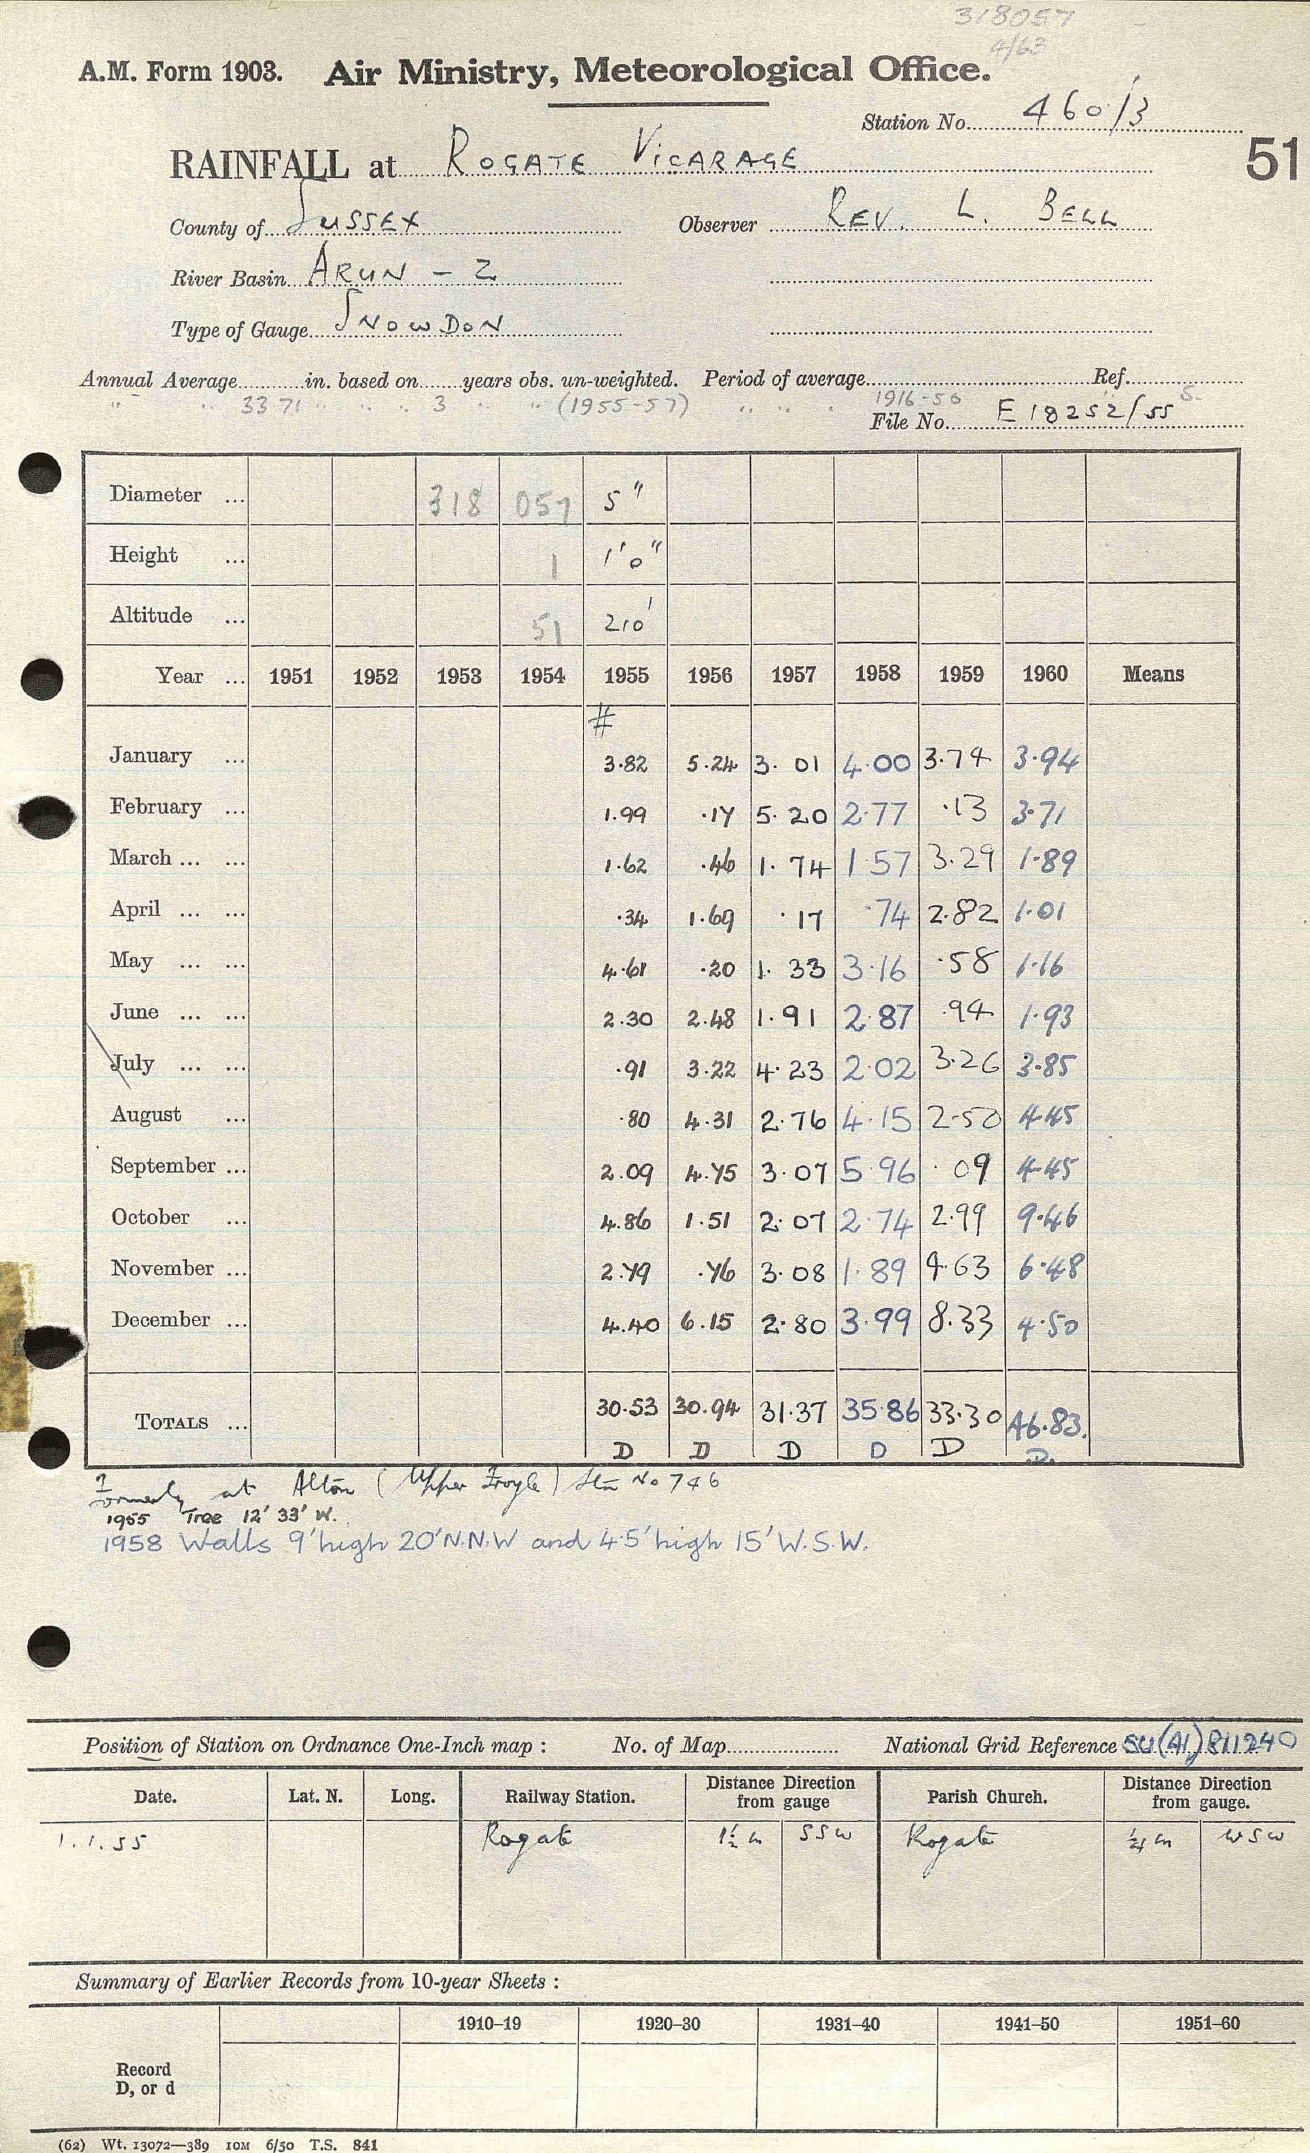 318057
4/63
A.M. Form 1903. Air Ministry, Meteorological Office.
Station No. 460/3
RAINFALL at ROGATE VICARAGE
51
County of SUSSEX Observer REV. L. BELL
River Basin ARUN - 2
Type of Gauge SNOWDON
Annual Average in. based on years obs. un-weighted. Period of average Ref.
" " 33 71 " " " 3 " " " (1955-57) " " " 1916-50 S.
File No. E 18252/55
Diameter ... 318 057 5"
Height ... 1 1'0"
Altitude ... 51 210'
Year ... 1951 1952 1953 1954 1955 1956 1957 1958 1959 1960 Means
#
January ... 3.82 5.24 3.01 4.00 3.74 3.94
February ... 1.99 .17 5.20 2.77 .13 3.71
March ... ... 1.62 .46 1.74 1.57 3.29 1.89
April ... ... .34 1.69 .17 .74 2.82 1.01
May ... ... 4.61 .20 1.33 3.16 .58 1.16
June ... ... 2.30 2.48 1.91 2.87 .94 1.93
July ... ... .91 3.22 4.23 2.02 3.26 3.85
August ... .80 4.31 2.76 4.15 2.50 4.45
September ... 2.09 4.75 3.07 5.96 .09 4.45
October ... 4.86 1.51 2.07 2.74 2.99 9.46
November ... 2.79 .76 3.08 1.89 4.63 6.48
December ... 4.40 6.15 2.80 3.99 8.33 4.50
TOTALS ... 30.53 30.94 31.37 35.86 33.30 46.83.
D D D D D D.
Formerly at Alton (Upper Froyle) Stn No 746
1955 Tree 12' 33' W.
1958 Walls 9' high 20' N.N.W and 4.5' high 15' W.S.W.
Position of Station on Ordnance One-Inch map : No. of Map National Grid Reference SU(41) 811240
Date. Lat. N. Long. Railway Station. Distance Direction from gauge Parish Church. Distance Direction from gauge.
1.1.55 Rogate 1½ m SSW Rogate ¼ m WSW
Summary of Earlier Records from 10-year Sheets :
1910–19 1920–30 1931–40 1941–50 1951–60
Record
D, or d
(62) Wt. 13072—389 10M 6/50 T.S. 841